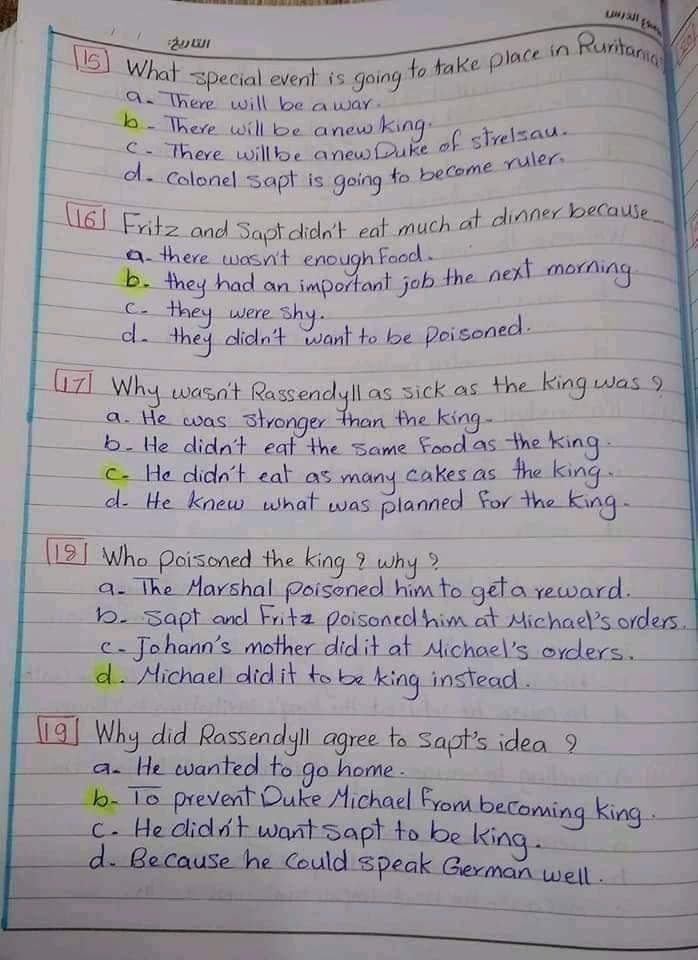 التاريخ:
موضوع الدرس
15 What special event is going to take place in Ruritania?
a- There will be a war.
b- There will be a new king.
c- There will be a new Duke of Strelsau.
d. Colonel Sapt is going to become ruler.
16 Fritz and Sapt didn't eat much at dinner because
a- there wasn't enough food.
b- they had an important job the next morning.
c- they were shy.
d. they didn't want to be poisoned.
17 Why wasn't Rassendyll as sick as the king was?
a. He was stronger than the king.
b- He didn't eat the same food as the king.
c- He didn't eat as many cakes as the king.
d- He knew what was planned for the king.
18 Who poisoned the king? why?
a- The Marshal poisoned him to get a reward.
b- Sapt and Fritz poisoned him at Michael's orders.
c- Johann's mother did it at Michael's orders.
d. Michael did it to be king instead.
19 Why did Rassendyll agree to Sapt's idea?
a- He wanted to go home.
b- To prevent Duke Michael from becoming king.
c. He didn't want Sapt to be king.
d. Because he could speak German well.